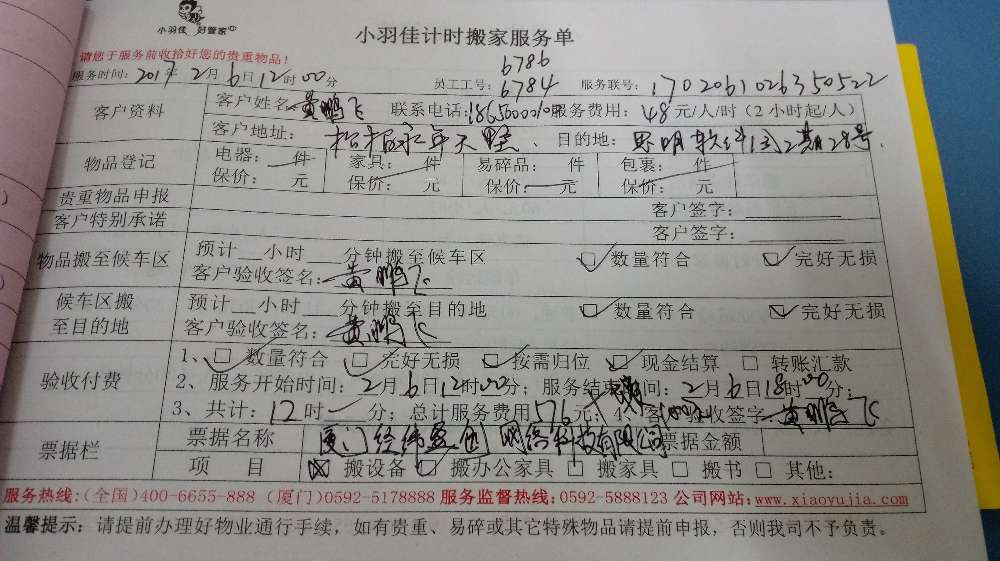 小羽佳 好管家
小羽佳计时搬家服务单
请您于服务前收拾好您的贵重物品！
6786
服务时间：2017年2月6日12时00分 员工工号：6784 服务联号：1702061026350522
客户资料 客户姓名：黄鹏飞 联系电话： 服务费用：48元/人/时（2小时起/人）
客户地址： 目的地：思明软件园2期28号
物品登记 电器： 件 家具： 件 易碎品： 件 包裹： 件
保价： 元 保价： 元 保价： 元 保价： 元
贵重物品申报 客户签字：
客户特别承诺 客户签字：
物品搬至候车区 预计__小时___分钟搬至候车区 数量符合 完好无损
客户验收签名：黄鹏飞
候车区搬至目的地 预计__小时___分钟搬至目的地 数量符合 完好无损
客户验收签名：黄鹏飞
验收付费 1、 数量符合 完好无损 按需归位 现金结算 转账汇款
2、服务开始时间：2月6日12时00分；服务结束时间：2月6日18时00分；
3、共计：12时 分；总计服务费用576元；4、客户验收签字：黄鹏飞
票据栏 票据名称 厦门经纬 网络科技有限公司 票据金额
项目 搬设备 搬办公家具 搬家具 搬书 其他：
服务热线：(全国)400-6655-888 (厦门)0592-5178888 服务监督热线：0592-5888123 公司网站：www.xiaoyujia.com
温馨提示：请提前办理好物业通行手续，如有贵重、易碎或其它特殊物品请提前申报，否则我司不予负责。